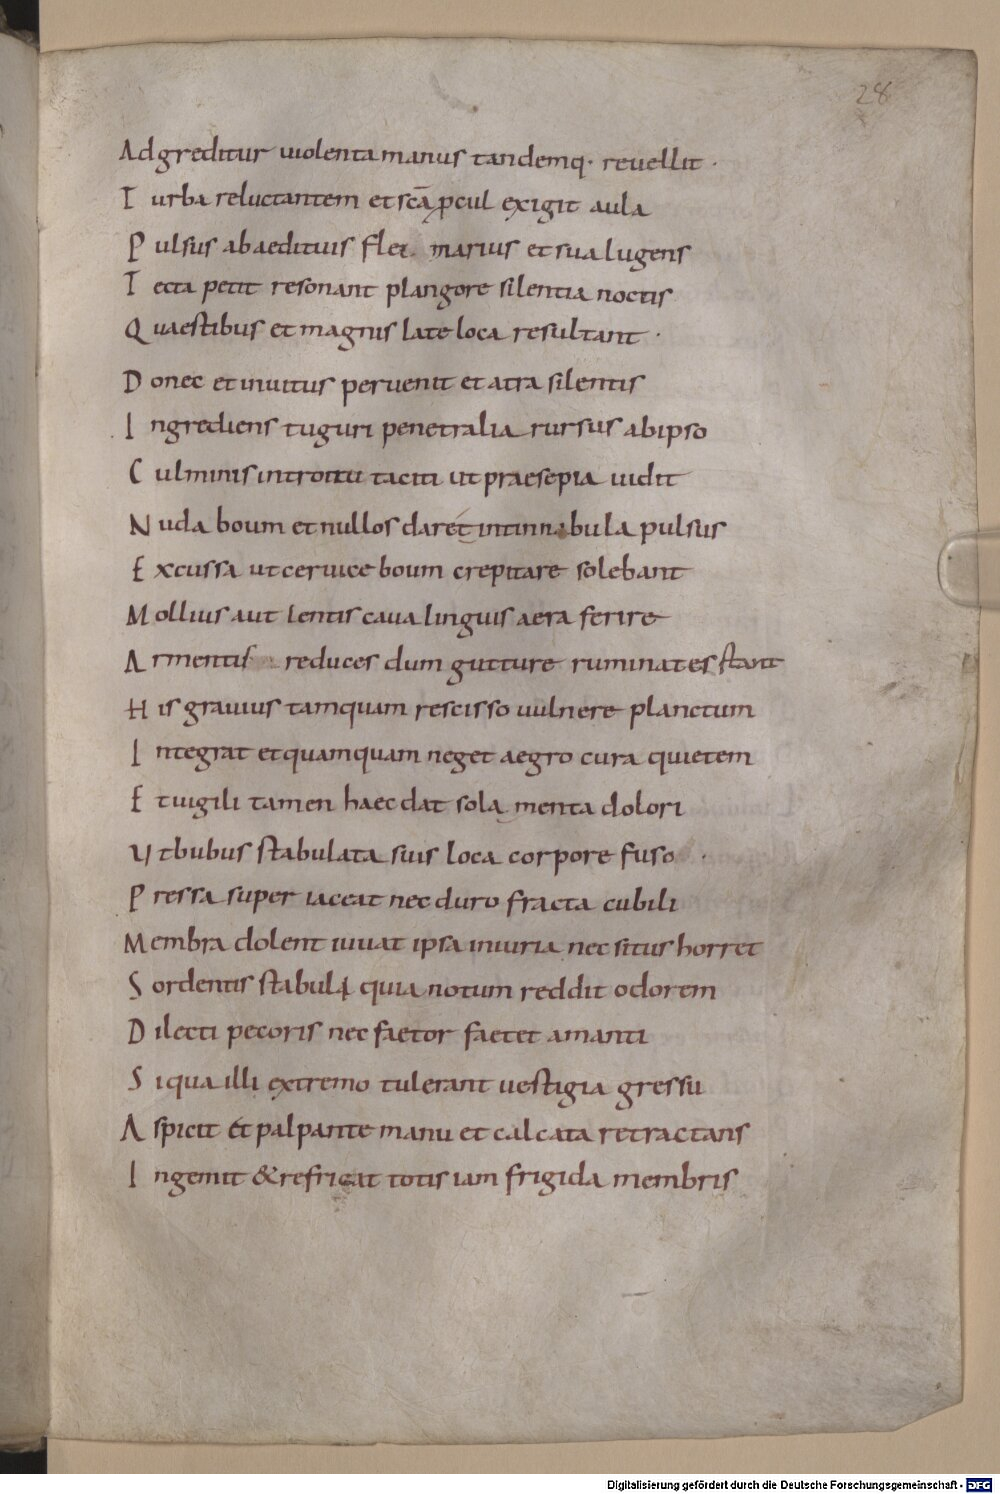 28
Adgreditur uiolenta manus tandemq· reuellit ·
Turba reluctantem et scā ꝓcul exigit aula
Pulsus ab aedituis flei. marius et sua lugens
Tecta petit resonant plangore silentia noctis
Quaestibus et magnis late loca resultant ·
Donec et inuitus peruenit et atra silentis
Ingrediens tuguri penetralia rursus ab ipso
Culminis introitu taciti ut praesepia uidit
Nuda boum et nullos daret intinnabula pulsus
Excussa ut ceruice boum crepitare solebant
Mollius aut lentis caua linguis aera ferire
Armentis reduces dum gutture ruminates stant
His grauius tamquam rescisso uulnere planctum
Integrat et quamquam neget aegro cura quietem
Et uigili tamen haec dat sola menta dolori
Ut bubus stabulata suis loca corpore fuso ·
Pressa super iaceat nec duro fracta cubili
Membra dolent iuuat ipsa iniuria nec situs horret
Sordentis stabulę quia notum reddit odorem
Dilecti pecoris nec faetor faetet amanti
Siqua illi extremo tulerant uestigia gressu
Aspicit et palpante manu et calcata retractans
Ingemit & refricat totis iam frigida membris
Digitalisierung gefördert durch die Deutsche Forschungsgemeinschaft - DFG